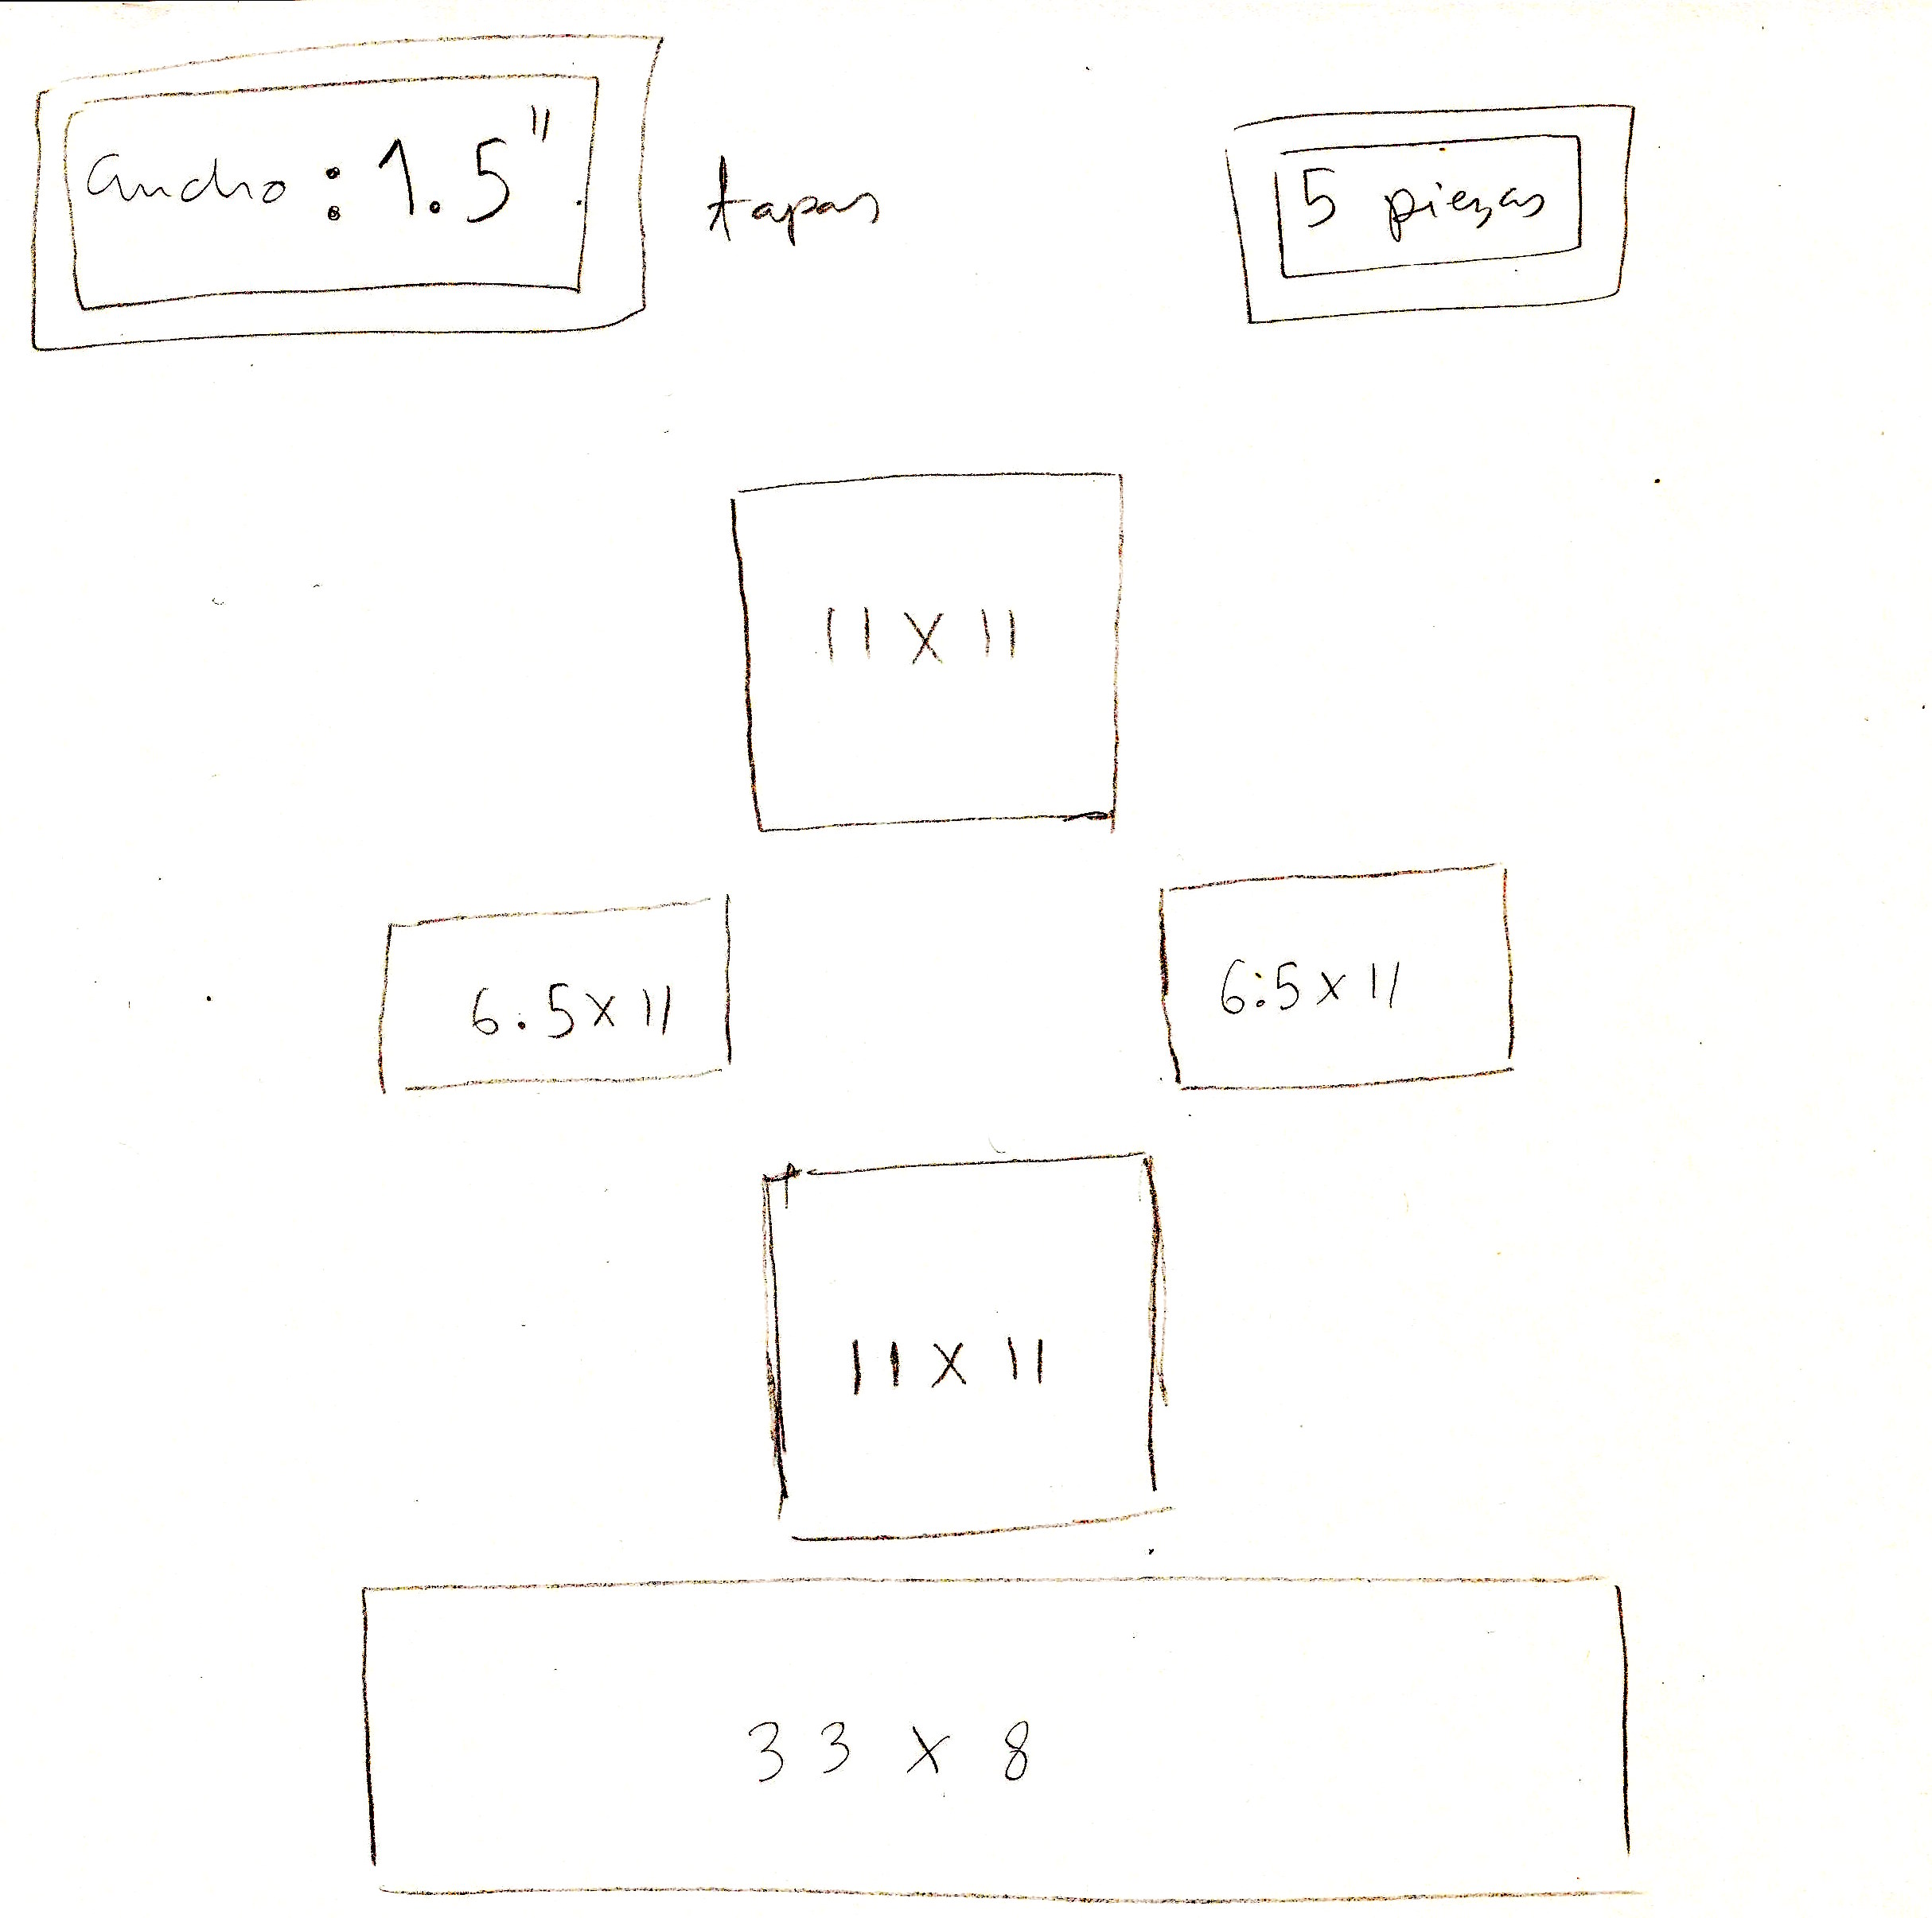 ancho: 1.5"
tapas
5 piezas
11 x 11
6.5 x 11
6.5 x 11
11 x 11
33 x 8